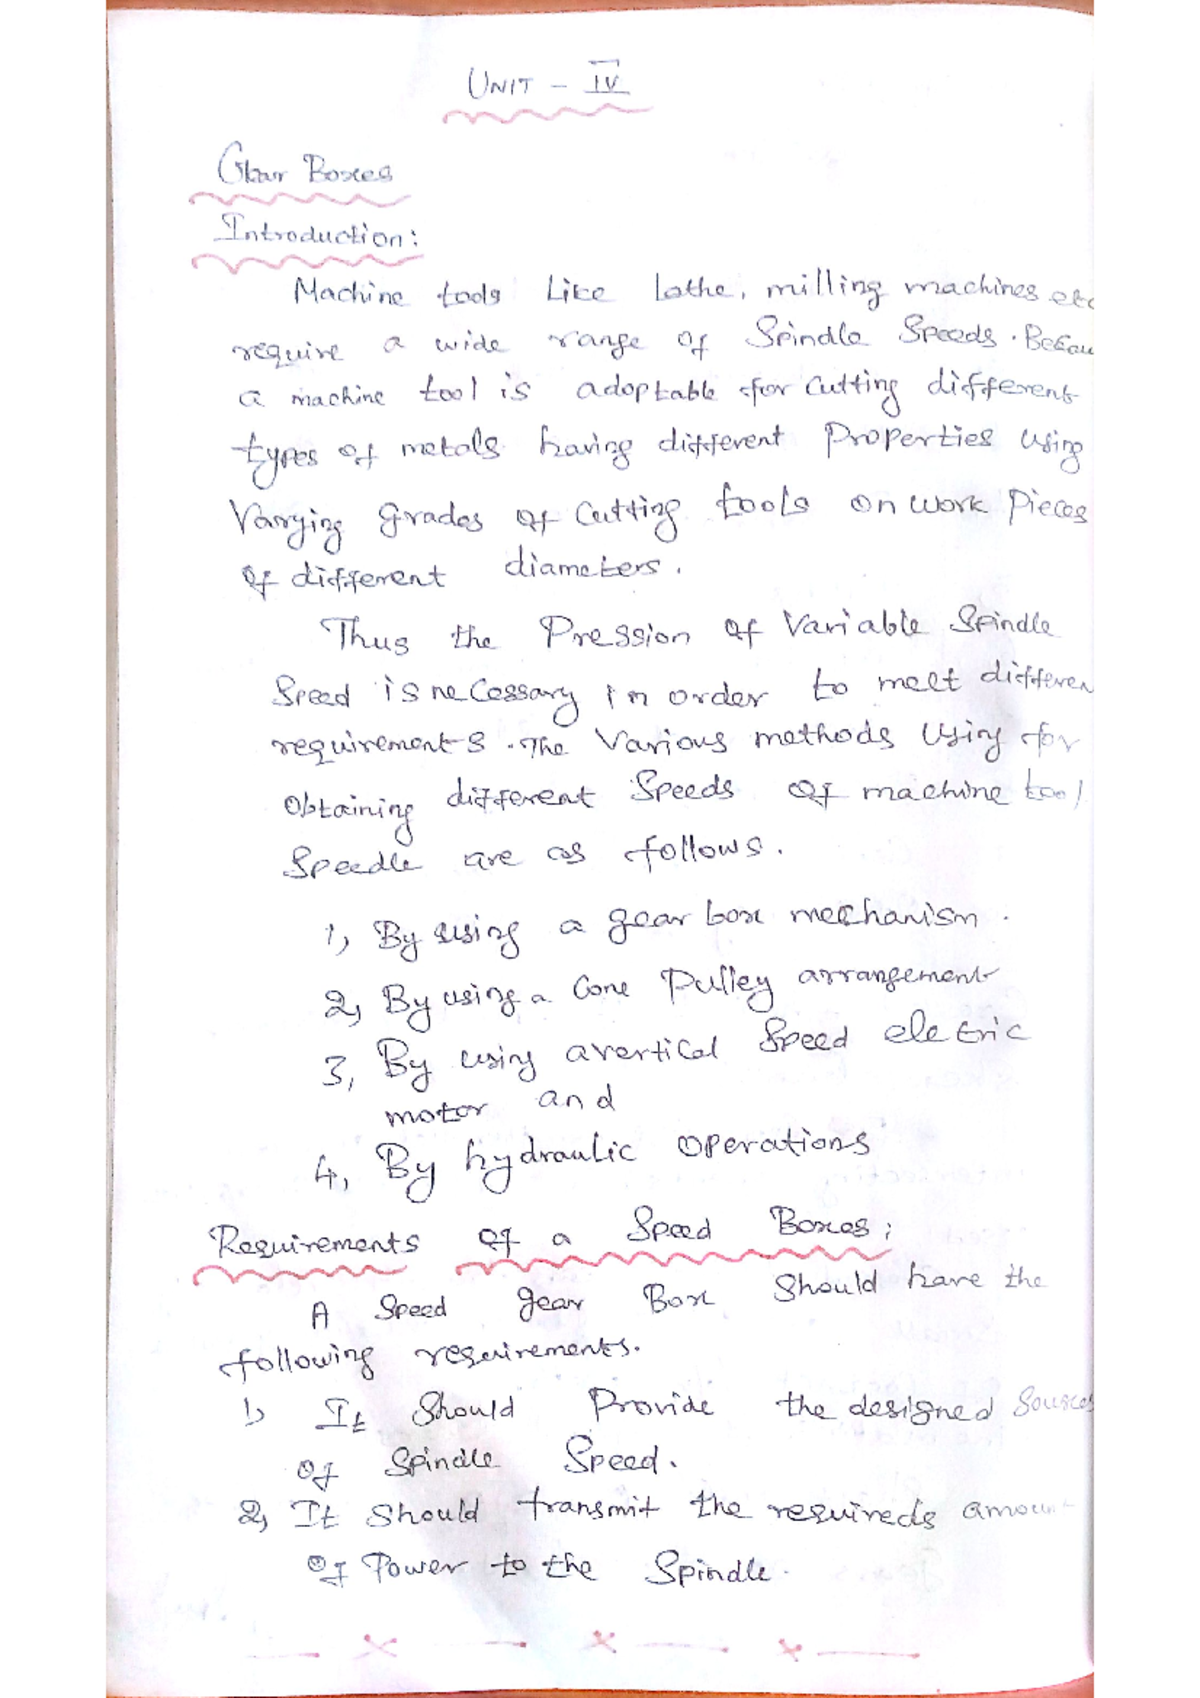 UNIT - IV
Gear Boxes
Introduction:
Machine tools Like Lathe, milling machines etc
require a wide range of Spindle Speeds. Becau
a machine tool is adoptable for cutting different
types of metals having different Properties Using
Varying grades of Cutting tools on work Pieces
Of different diameters.
Thus the Pression of Variable Spindle
Speed is necessary in order to meet differen
requirements. The Various methods Using for
Obtaining different Speeds Of machine tool
Speedle are as follows.
1, By using a gear box mechanism.
2, By using a Cone Pulley arrangement
3, By using avertical Speed eletric
motor and
4, By hydraulic Operations
Requirements Of a Speed Boxes:
A Speed gear Box Should have the
following requirements.
1, It Should Provide the designed
Of Spindle Speed.
2, It Should transmit the requireds amou
Of Power to the Spindle.